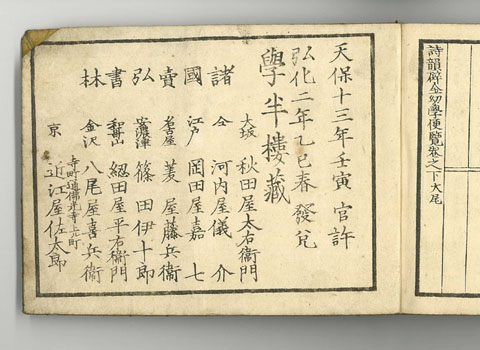 詩韻碎金幼學便覽卷之下大尾
天保十三年壬寅 官許
弘化二年乙巳春 發兌
學半樓藏
大坂 秋田屋太右衛門
諸 仝 河内屋儀介
國 江戸 岡田屋嘉七
賣 名古屋 菱屋藤兵衛
弘 安濃津 篠田伊十郎
書 和歌山 綛田屋平右衛門
林 金沢 八尾屋喜兵衛
寺町通佛光寺上町
京 近江屋佐太郎